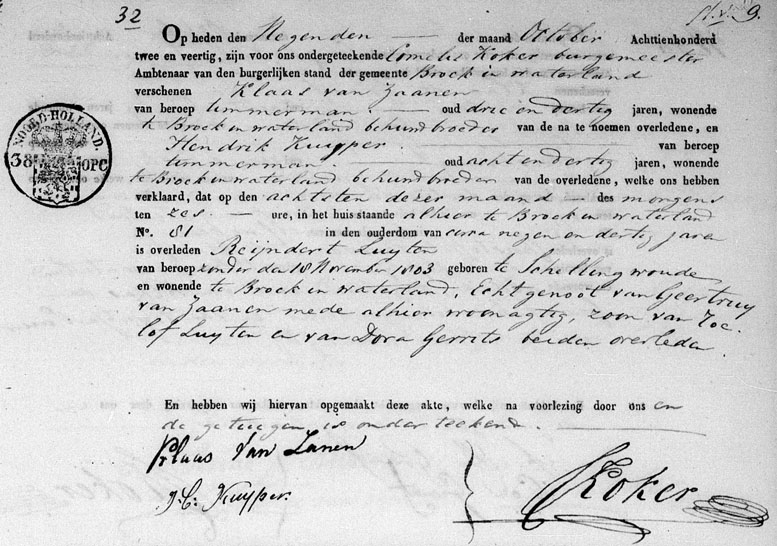 32
9.
Op heden den Negenden de maand October Achttienhonderd
twee en veertig, zijn voor ons ondergeteekende Cornelis Koker burgemeester
Ambtenaar van den burgerlijken stand der gemeente Broek in waterland
verschenen Klaas van Zaanen
van beroep timmerman. oud drie en dertig jaren, wonende
te Broek in waterland behuwdbroeder van de na te noemen overledene, en
Hendrik Kuyper. van beroep
timmerman. oud acht en dertig jaren, wonende
te Broek in waterland behuwdbroeder van de overledene, welke ons hebben
verklaard, dat op den achtsten dezer maand des morgens
ten zes ure, in het huis staande alhier te Broek in waterland
No. 81 in den ouderdom van circa negen en dertig jaren
is overleden Reijndert Luyten
van beroep zonder den 18 November 1803 geboren te Schellingwoude
en wonende te Broek in waterland, Echtgenoot van Geertruy
van Zaanen mede alhier woonagtig, zoon van Roe-
lof Luyten en van Dora Gerrits beiden overleden.
NOORD-HOLLAND.
38 OPC
En hebben wij hiervan opgemaakt deze akte, welke na voorlezing door ons en
de getuigen is onderteekend.
Klaas Van Zanen
Kuyper.
Koker